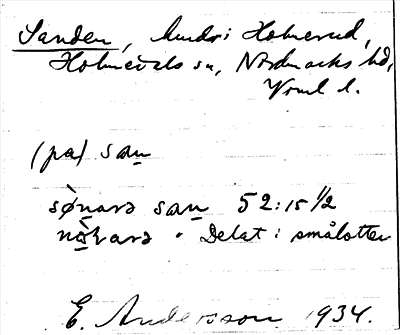 Sanden, Aundr i Holmerud,
Holmedals sn, Nordmarks hd,
Vrml l.
(pa) san̲
sø̀n̲arə san̲ 52:15 1/2
nò̲rarə " Delat i smålotter
E. Andersson 1934.